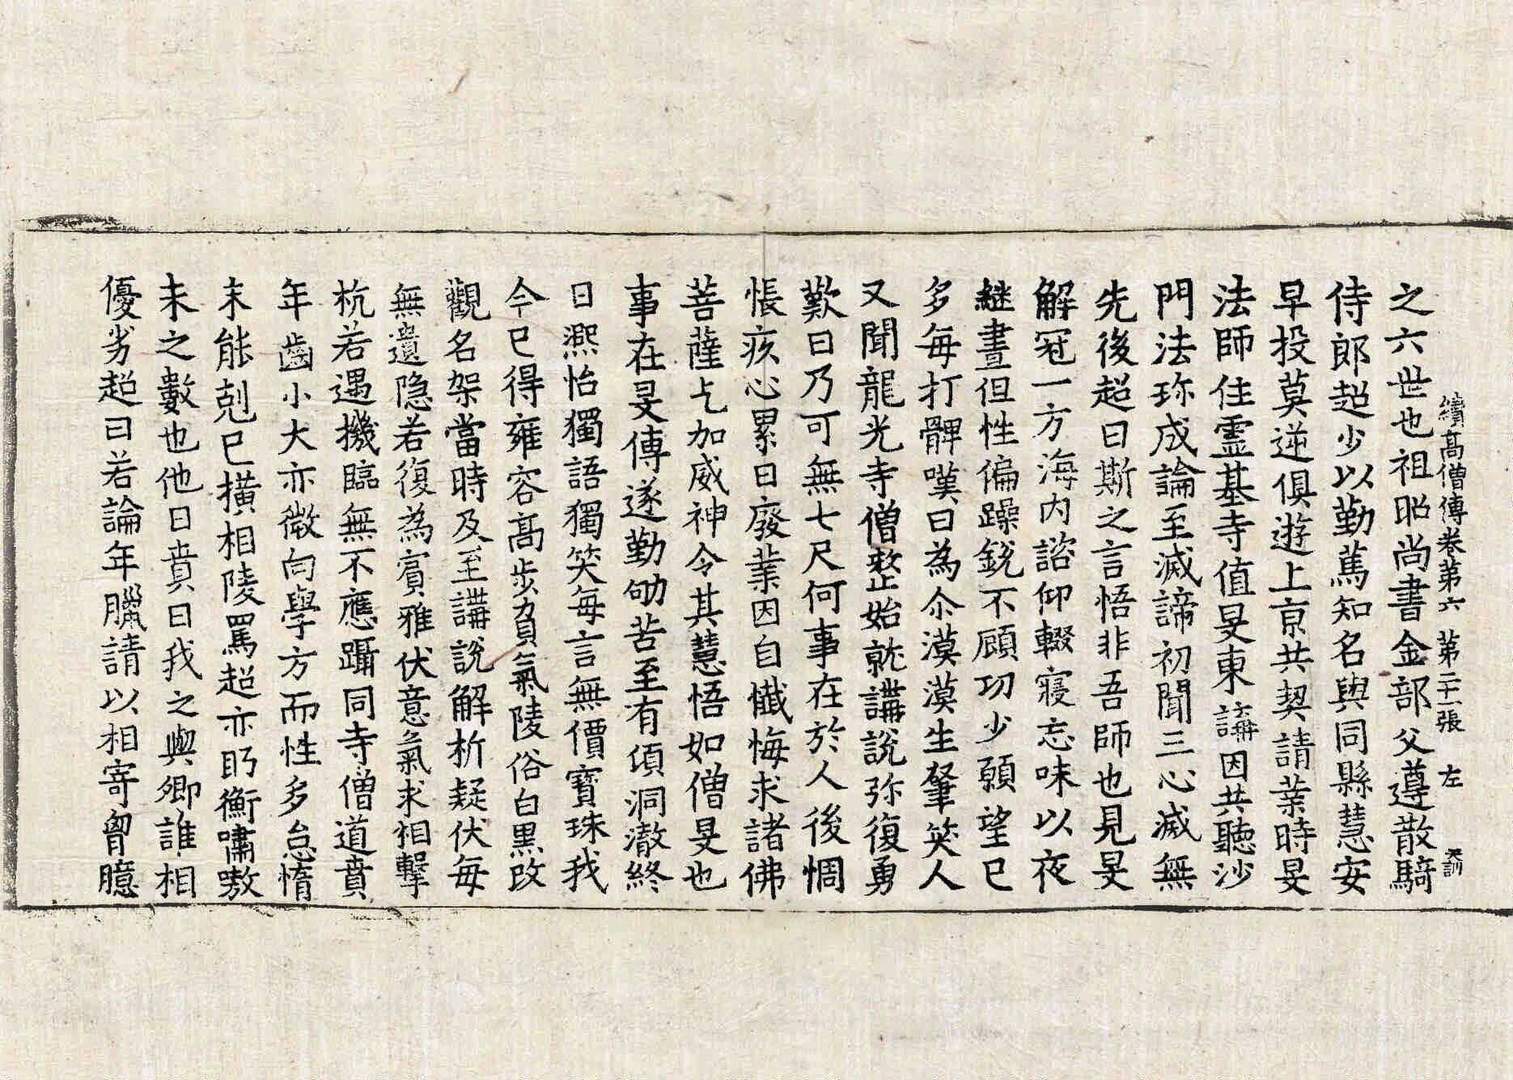 續高僧傳卷第六　第二十一張　左
之六世也祖昭尚書金部父遵散騎
侍郎超少以勤篤知名與同縣慧安
早投莫逆俱遊上京共契請業時旻
法師住靈基寺值旻東講因共聽沙
門法珎成論至滅諦初聞三心滅無
先後超曰斯之言悟非吾師也見旻
解冠一方海内諮仰輟寢忘味以夜
繼晝但性偏躁銳不顧功少願望已
多每打髀嘆曰為尒漠漠生肇笑人
又聞龍光寺僧整始就講說弥復勇
歎曰乃可無七尺何事在於人後惆
悵疾心累日廢業因自懺悔求諸佛
菩薩乞加威神令其慧悟如僧旻也
事在旻傳遂勤劬苦至有頃洞澈終
日凞怡獨語獨笑每言無價寶珠我
今已得雍容髙步負氣陵俗白黒改
觀名架當時及至講說解析疑伏每
無遺隐若復為賓雅伏意氣求相擊
抗若遇機臨無不應躡同寺僧道賁
年齒小大亦微向學方而性多怠惰
未能剋已橫相陵罵超亦盱衡嘯嗷
未之數也他日賁曰我之與卿誰相
優劣超曰若論年臘請以相寄胷臆